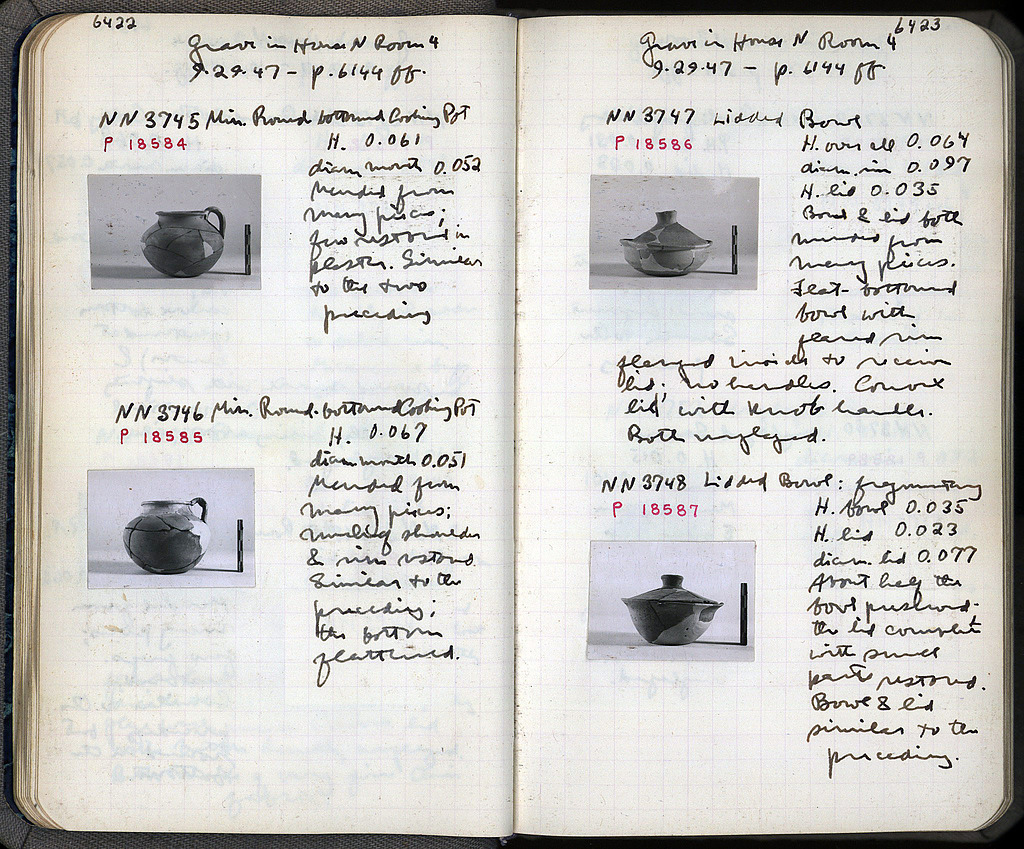 6422
Grave in House N Room 4
9.29.47 – p. 6144 ff.
NN 3745 Min. Round-bottomed Cooking Pot
P 18584
H. 0.061
diam. mouth 0.052
Mended from
many pieces;
few restored in
plaster. Similar
to the two
preceding
NN 3746 Min. Round-bottomed Cooking Pot
P 18585
H. 0.067
diam. mouth 0.051
Mended from
many pieces;
much of shoulder
& rim restored.
Similar to the
preceding;
the bottom
flattened.
6423
Grave in House N Room 4
9.29.47 – p. 6144 ff
NN 3747 Lidded Bowl
P 18586
H. over all 0.064
diam. rim 0.097
H. lid 0.035
Bowl & lid both
mended from
many pieces.
Flat-bottomed
bowl with
flared rim
flanged inside to receive
lid; no handles. Convex
lid with knob handle.
Both unglazed.
NN 3748 Lidded Bowl: fragmentary
P 18587
H. bowl 0.035
H. lid 0.023
diam. lid 0.077
About half the
bowl preserved.
the lid complete
with small
parts restored.
Bowl & lid
similar to the
preceding.